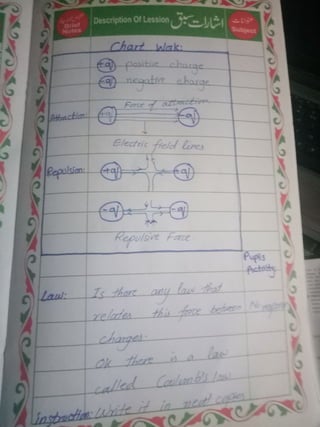 Brief Notes
Description Of Lession اشارات سبق
عنوانات Subject
Chart Work:
+q positive charge
-q negative charge
Force of attraction
Attraction: +q -q
Electric field lines
Repulsion: +q +q
-q -q
Repulsive Force
Pupils Activity
Law: Is there any law that
relates this force between No response
charges.
Ok there is a law
called Coulomb's law
instruction: Write it in neat copies